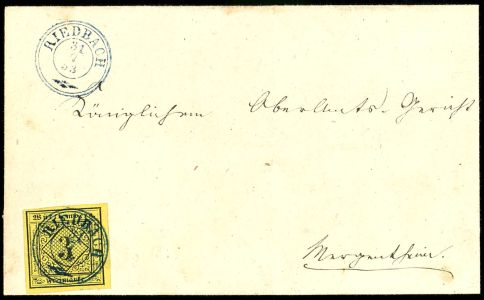 RIEDBACH
31
7
53
Königlichem Oberamts-Gericht
RIEDBACH
3
Mergentheim.